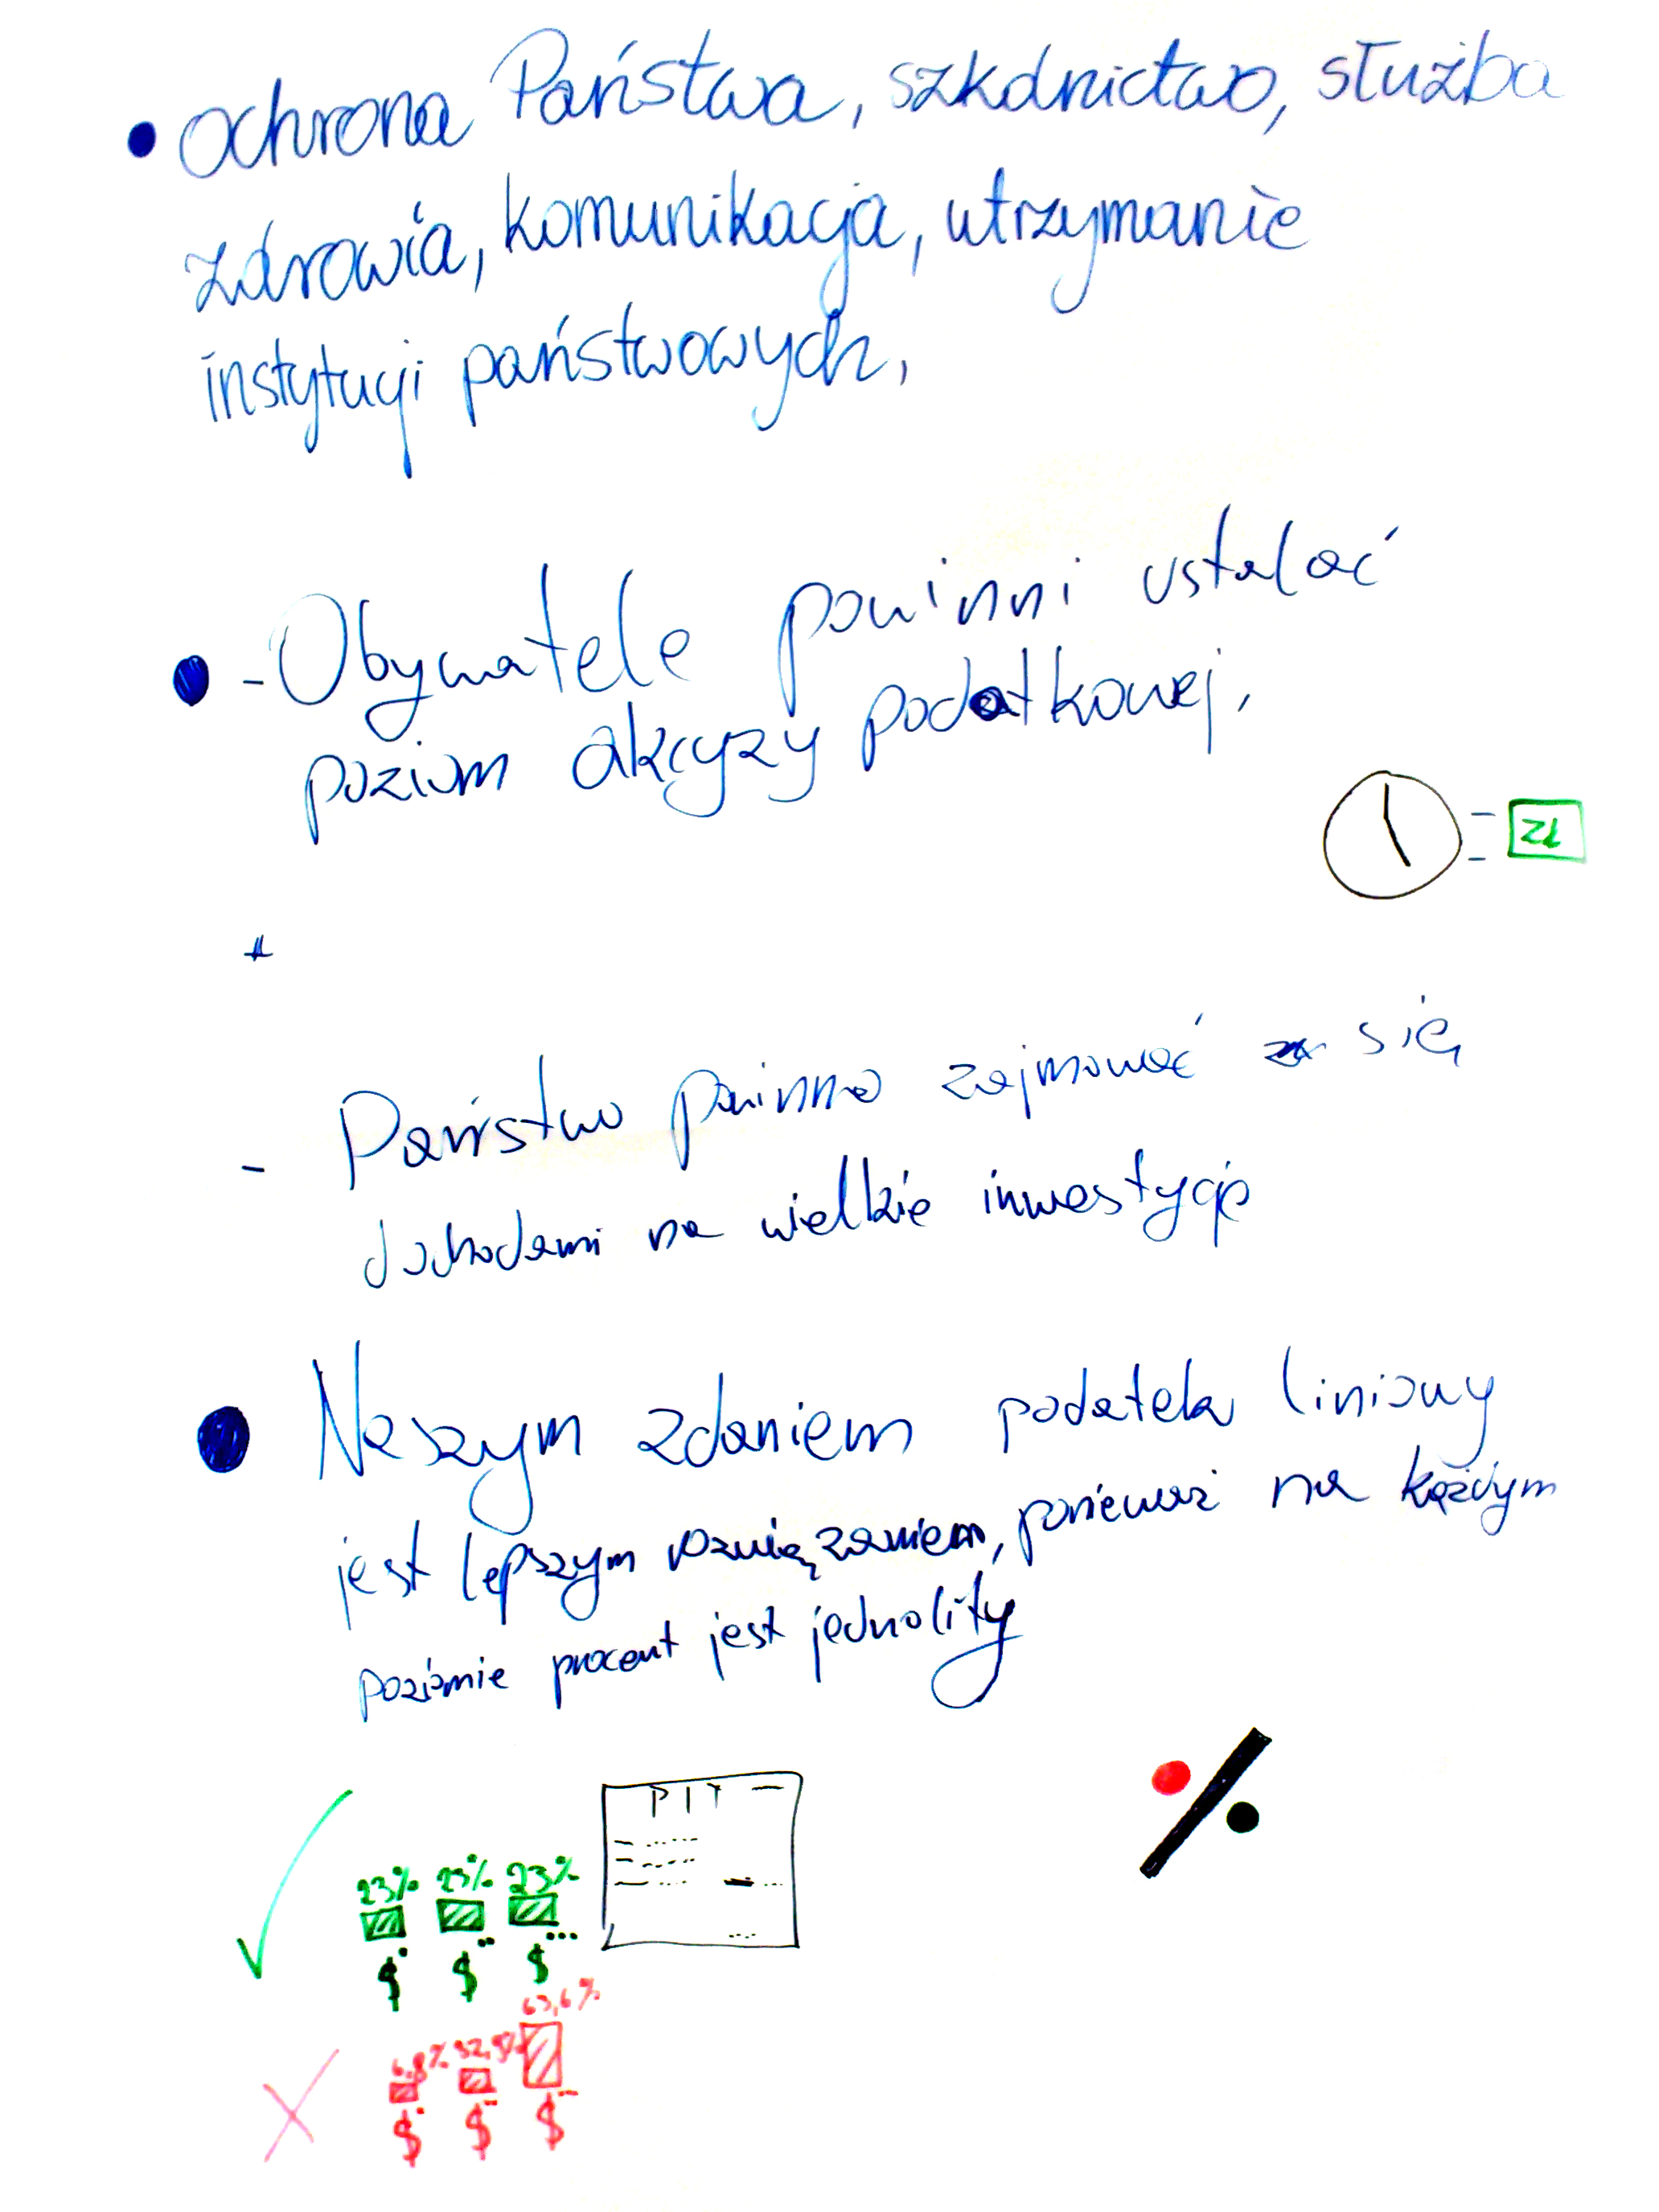 • ochrona Państwa, szkolnictwo, służba
zdrowia, komunikacja, utrzymanie
instytucji państwowych,
• - Obywatele powinni ustalać
poziom akcyzy podatkowej,
= zł
+
- Państwo powinno zajmować się
dochodami na wielkie inwestycje
• Naszym zdaniem podatek liniowy
jest lepszym rozwiązaniem, ponieważ na każdym
poziomie procent jest jednolity
%
PIT
23% 23% 23%
$ $ $
63,6%
6,8%
$ $ $